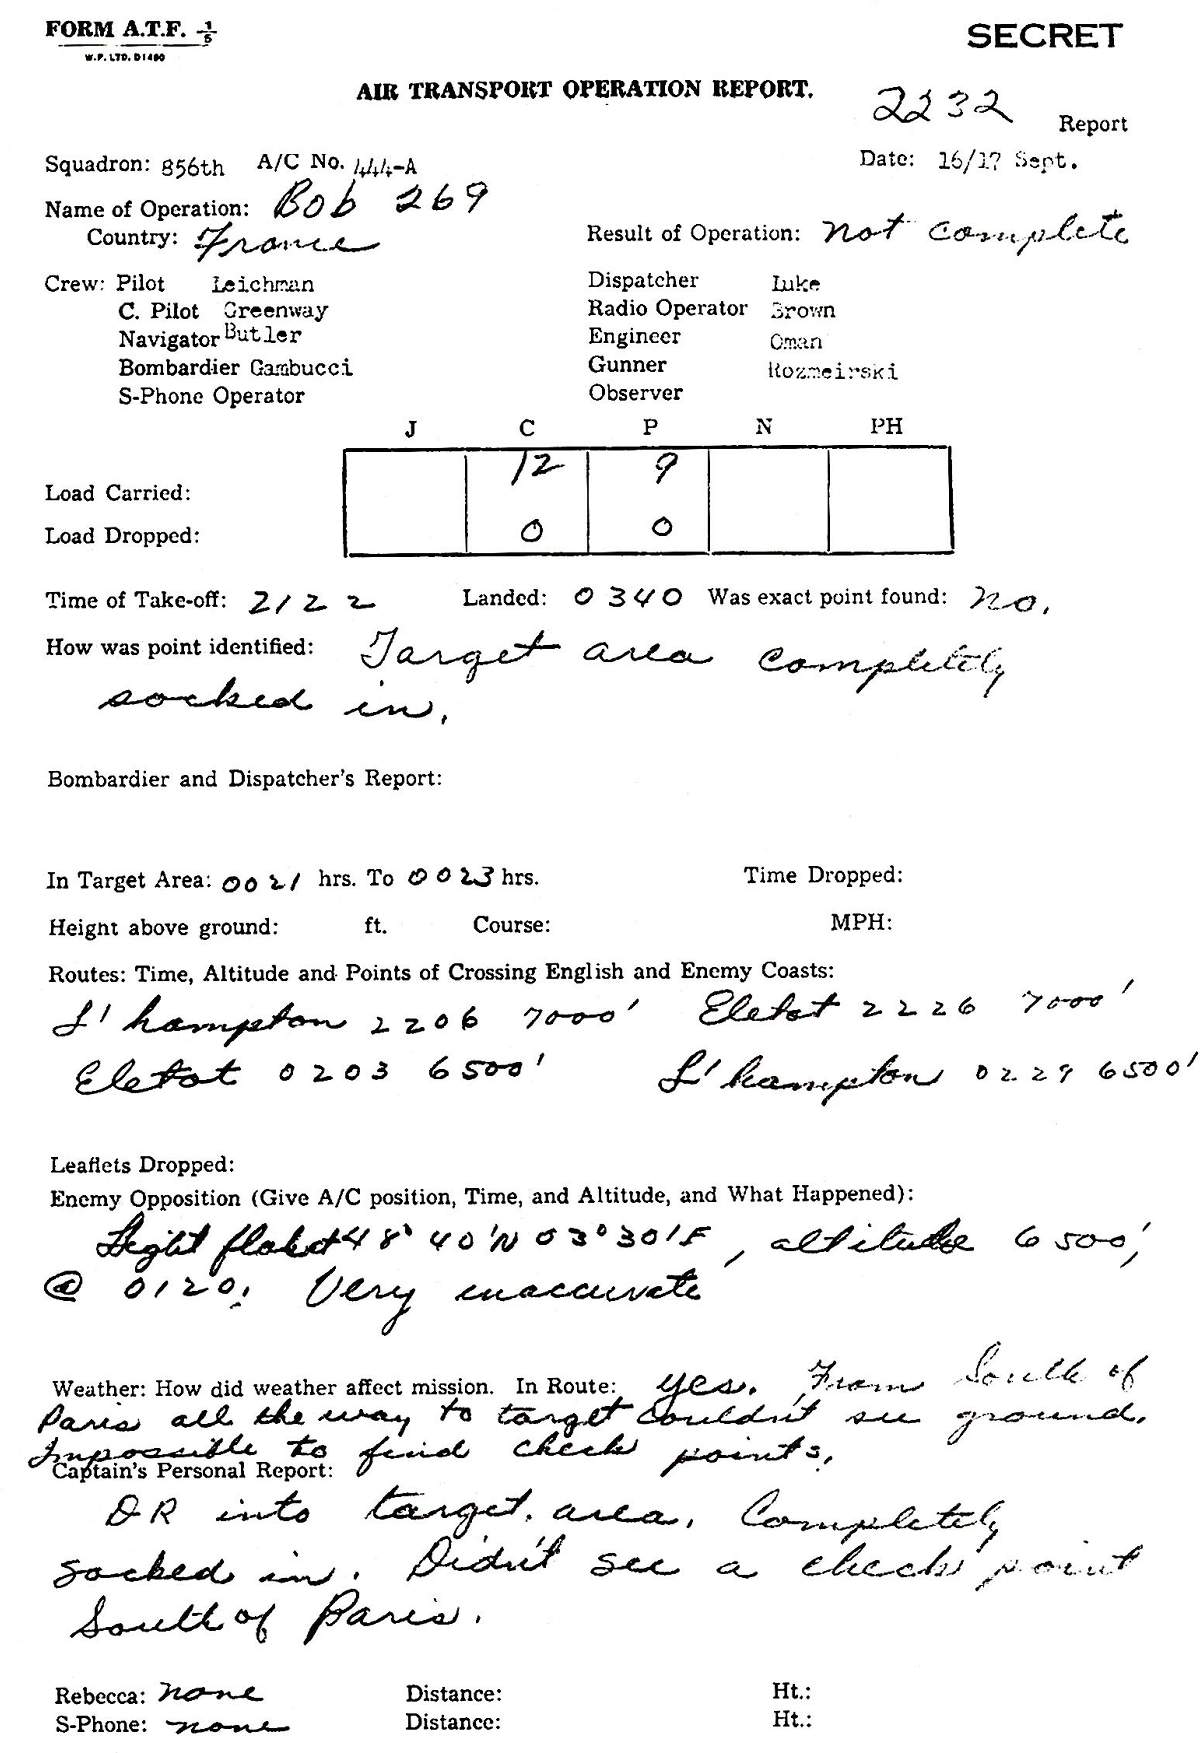 FORM A.T.F. 1/5
W.P. LTD. D1480
SECRET
AIR TRANSPORT OPERATION REPORT.
2232 Report
Squadron: 856th A/C No. 444-A Date: 16/17 Sept.
Name of Operation: Bob 269
Country: France Result of Operation: not complete
Crew: Pilot Leichman Dispatcher Luke
C. Pilot Greenway Radio Operator Brown
Navigator Butler Engineer Oman
Bombardier Gambucci Gunner Rozmeirski
S-Phone Operator Observer
J C P N PH
Load Carried: 12 9
Load Dropped: 0 0
Time of Take-off: 2122 Landed: 0340 Was exact point found: No.
How was point identified: Target area completely
socked in.
Bombardier and Dispatcher's Report:
In Target Area: 0021 hrs. To 0023 hrs. Time Dropped:
Height above ground: ft. Course: MPH:
Routes: Time, Altitude and Points of Crossing English and Enemy Coasts:
L'hampton 2206 7000' Eletot 2226 7000'
Eletot 0203 6500' L'hampton 0229 6500'
Leaflets Dropped:
Enemy Opposition (Give A/C position, Time, and Altitude, and What Happened):
Light flak at 48° 40'N 03° 30'E, altitude 6500',
@ 0120. Very inaccurate
Weather: How did weather affect mission. In Route: yes. From South of
Paris all the way to target couldn't see ground.
Impossible to find check points.
Captain's Personal Report:
DR into target area. Completely
socked in. Didn't see a check point
South of Paris.
Rebecca: none Distance: Ht.:
S-Phone: none Distance: Ht.: